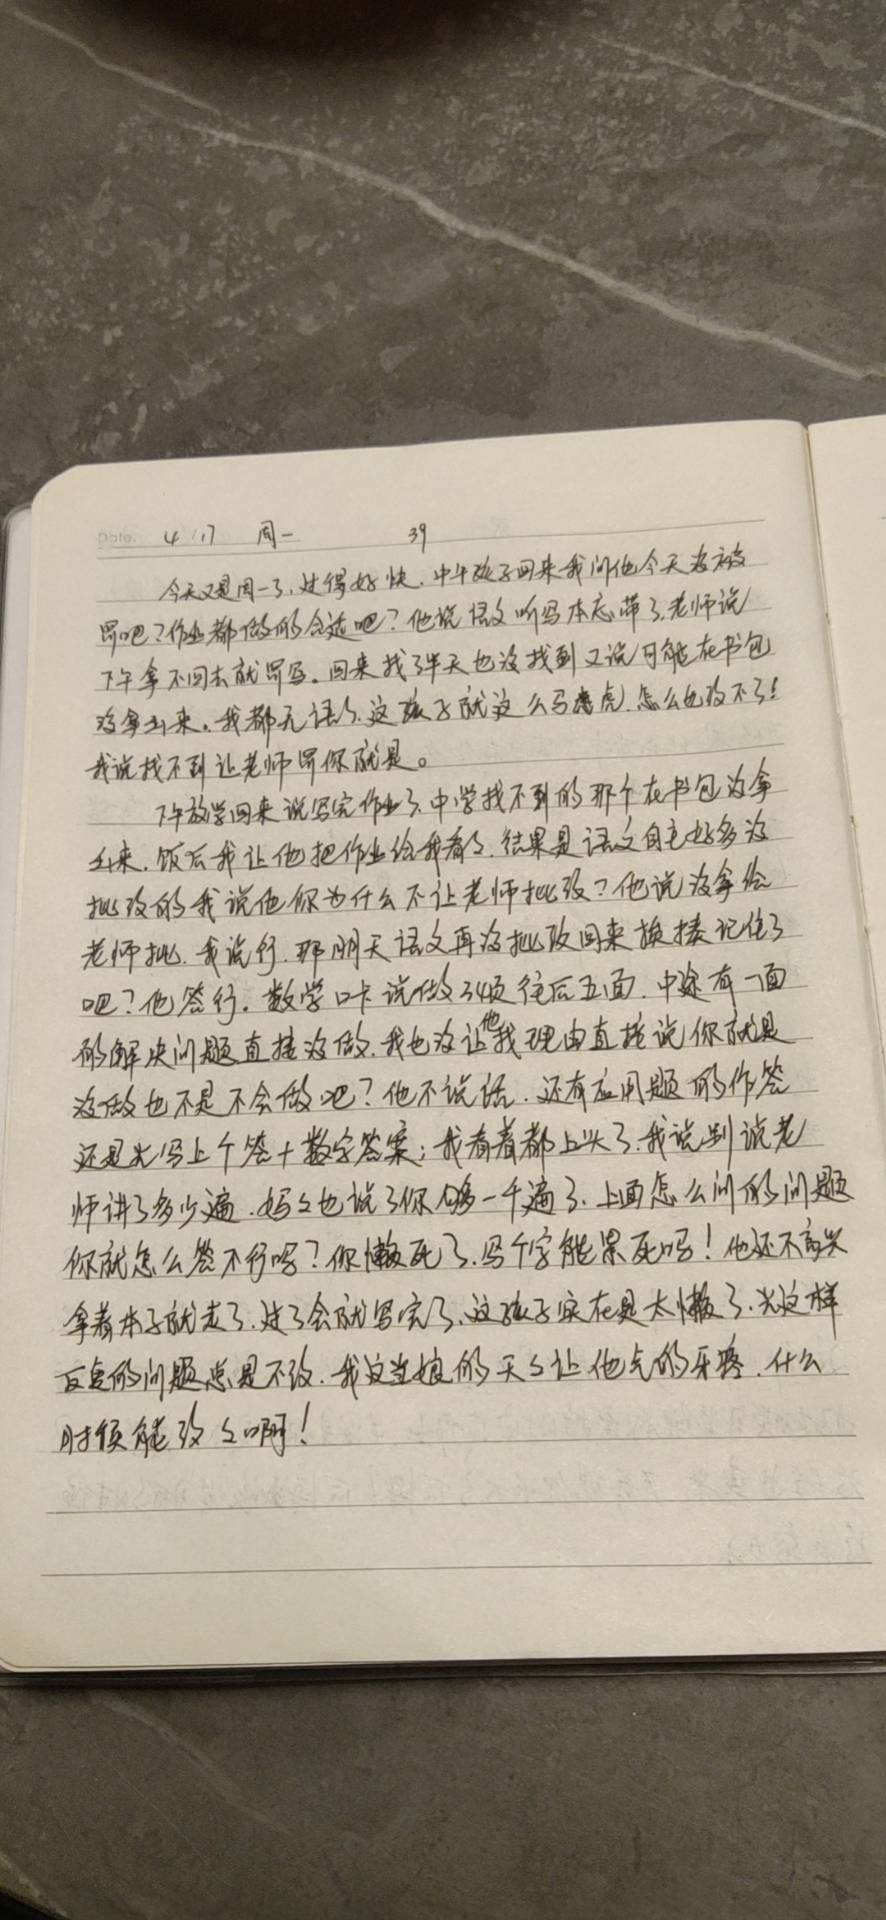 4/17 周一 39
今天又是周一了,过得好快.中午孩子回来我问他今天没被
罚吧?作业都做的合适吧?他说语文听写本忘带了,老师说
下午拿不回去就罚写。回来找了半天也没找到又说可能在书包
没拿出来。我都无语了.这孩子就这么马虎.怎么也改不了!
我说找不到让老师罚你就是。
下午放学回来说写完作业了.中学找不到的那个在书包没拿
出来.饭后我让他把作业给我看了.结果是语文自主好多没
批改的我说他你为什么不让老师批改?他说没拿给
老师批.我说行.那明天语文再没批改回来挨揍记住了
吧?他答行。数学口卡说做34页往后五面.中途有一面
的解决问题直接没做.我也没让他找理由直接说你就是
没做也不是不会做吧?他不说话.还有应用题的作答
还是光写上个答+数字答案;我看着都上火了.我说别说老
师讲了多少遍.妈々也说了你够一千遍了.上面怎么问的问题
你就怎么答不行吗?你懒死了.写个字能累死吗!他还不高兴
拿着本子就走了.过了会就写完了.这孩子实在是太懒了.光这样
反复的问题总是不改.我这当娘的天々让他气的牙疼.什么
时候能改々啊!